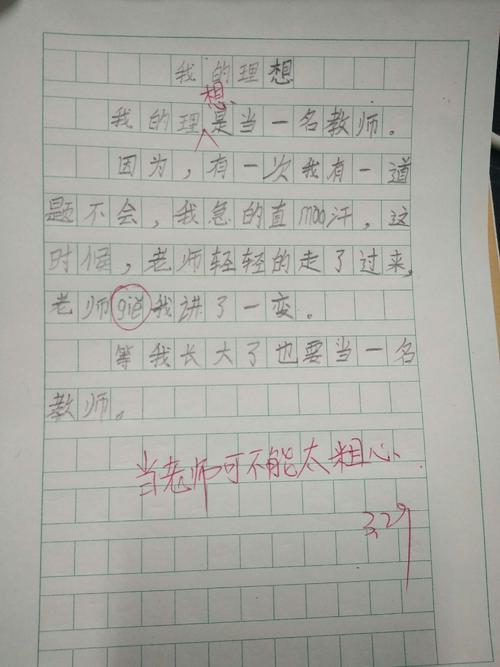 我的理想
想
我的理是当一名教师。
因为，有一次我有一道
题不会，我急的直mao汗，这
时候，老师轻轻的走了过来，
老师gié我讲了一变。
等我长大了也要当一名
教师。
当老师可不能太粗心
3.29